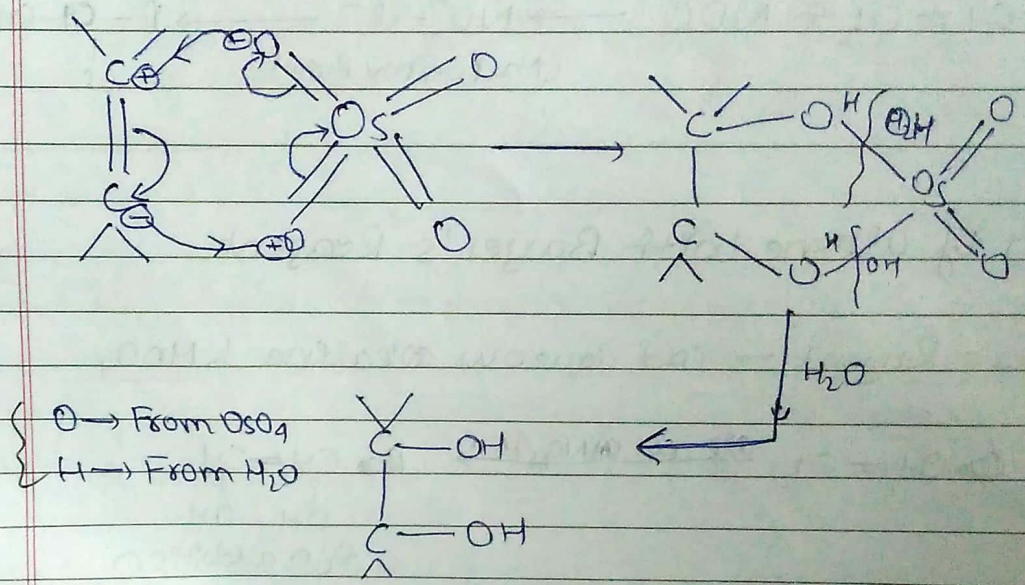 C ⊕ ⊖ O O
Os
C ⊖ ⊕ O O
C O H ⊕ OH O
Os
C O H OH O
H₂O
O → From OsO₄
H → From H₂O
C — OH
C — OH